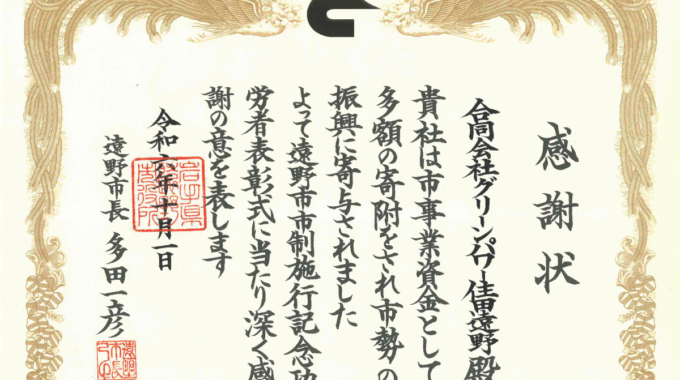 感謝状
合同会社グリーンパワー住田遠野殿
貴社は市事業資金として
多額の寄附をされ市勢の
振興に寄与されました
よって遠野市市制施行記念功
労者表彰式に当たり深く感
謝の意を表します
令和六年十月一日
遠野市長 多田一彦